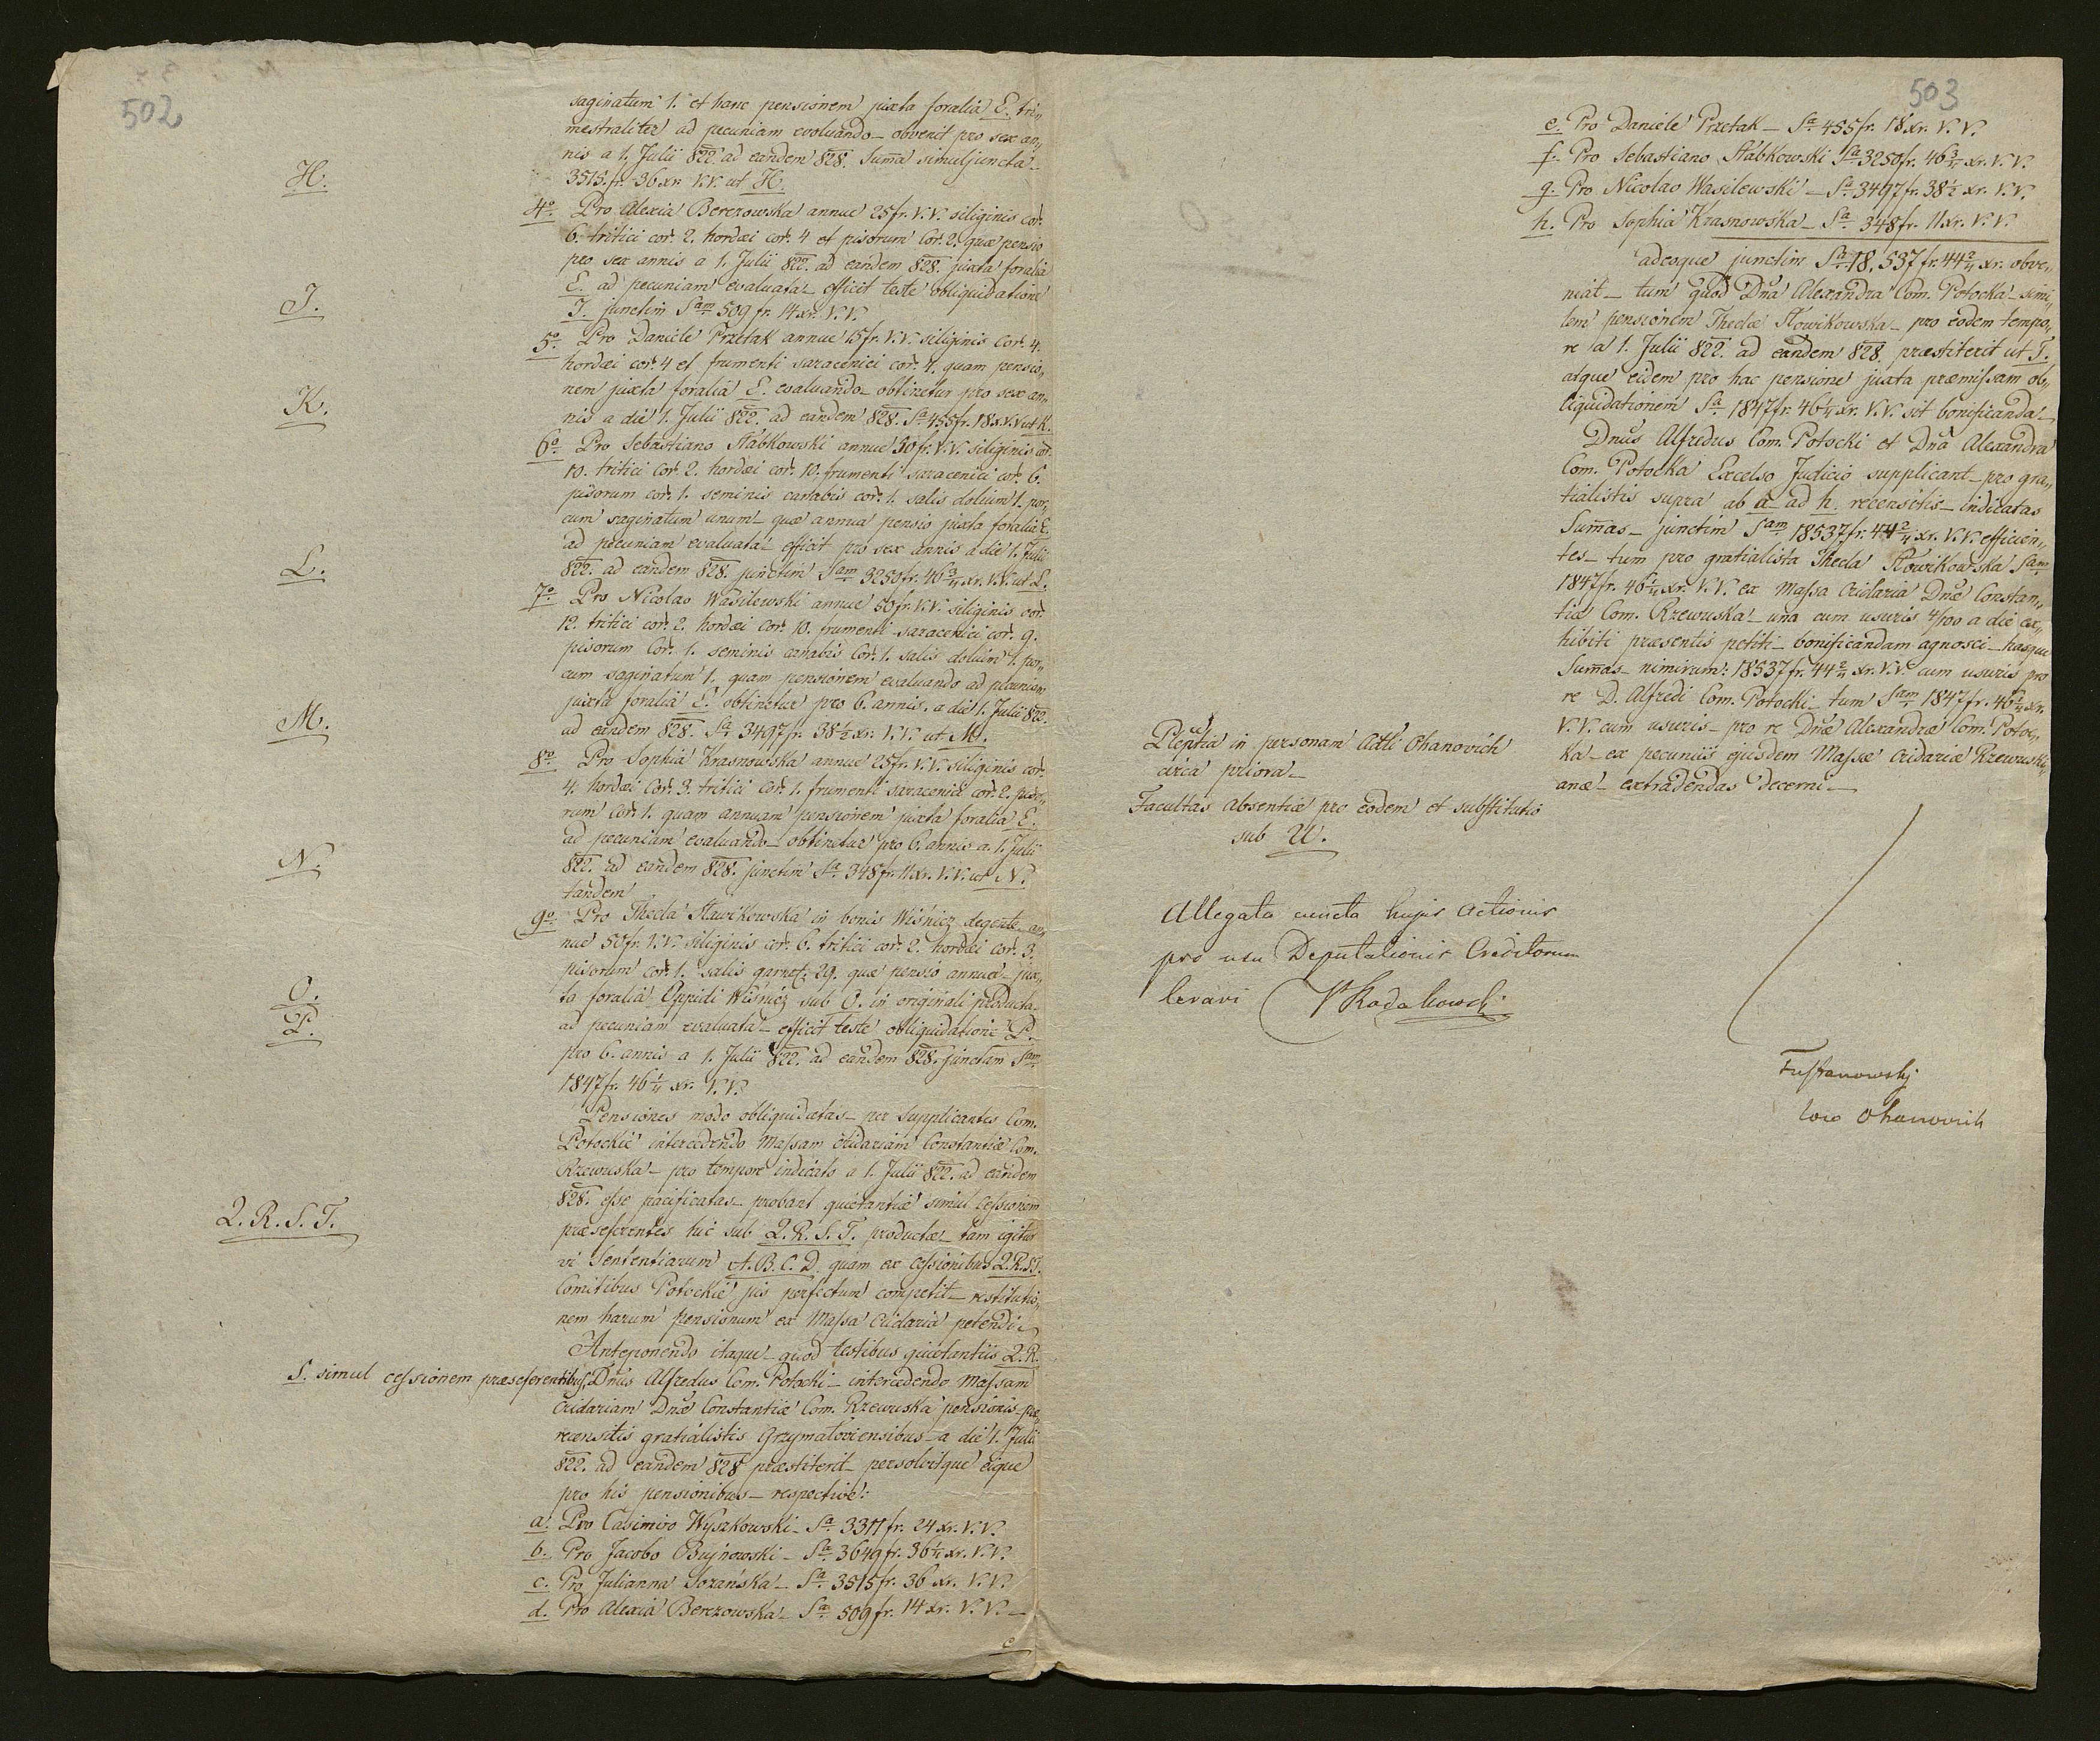 502
saginatum 1. et hanc pensionem juxta foralia E. tri„
mestraliter ad pecuniam evoluando – obvenit pro sex an„
nis a 1. Julii 822. ad eandem 828. Summa simul juncta
3515 fr. 36 xr. V.V. ut H.
H.
4o. Pro Alexia Berezowska annue 25 fr. V.V. siliginis cor.
6. tritici cor. 2. hordei cor. 4 et pisorum Cor. 2. quæ pensio
pro sex annis a 1. Julii 822. ad eandem 828. juxta foralia
E. ad pecuniam evaluata – efficit teste obliquidatione
I. junctim Sam 509 fr. 14 xr. V.V.
I.
5o. Pro Daniele Przetak annue 15 fr. V.V. siliginis cor. 4.
hordei cor. 4 et frumenti saracenici cor. 4. quam pensio„
nem juxta foralia E. evaluando – obtinetur pro sex an„
nis a die 1. Julii 822. ad eandem 828. Sa 455 fr. 18 x. V.V. ut K.
K.
6o. Pro Sebastiano Słabkowski annue 30 fr. V.V. siliginis cor.
10. tritici cor. 2. hordei cor. 10. frumenti saracenici cor. 6.
pisorum cor. 1. seminis canabis cor. 1. salis dolium 1. por„
cum saginatum unum – quæ annua pensio juxta foralia E.
ad pecuniam evaluata – efficit pro sex annis a die 1. Julii
822. ad eandem 828. junctim Sam 3250 fr. 46 3/4 xr. V.V. ut L.
L.
7o. Pro Nicolao Wasilewski annue 50 fr. V.V. siliginis cor.
12. tritici cor. 2. hordei cor. 10. frumenti saracenici cor. 9.
pisorum Cor. 1. seminis canabis Cor. 1. salis dolium 1. por„
cum saginatum 1. quam pensionem evaluando ad pecuniam
juxta foralia E. obtinetur pro 6. annis. a die 1. Julii 822.
ad eandem 828. Sa 3497 fr. 38 1/2 xr. V.V. ut M.
M.
8o. Pro Sophia Krasnowska annue 25 fr. V.V. siliginis cor.
4. hordei Cor. 3. tritici Cor. 1. frumenti saracenici cor. 2. piso„
rum Cor. 1. quam annuam pensionem juxta foralia E.
ad pecuniam evaluando – obtinetur pro 6. annis a 1. Julii
822. ad eandem 828. junctim Sa 348 fr. 11 xr. V.V. ut N.
N.
tandem
9o. Pro Thecla Sławikowska in bonis Wiśnicz degente an„
nue 50 fr. V.V. siliginis cor. 6. tritici cor. 2. hordei cor. 3.
pisorum cor. 1. salis garnet. 29. quæ pensio annua – jux„
ta foralia Oppidi Wiśnicz sub O. in originali producta
ad pecuniam evaluata – efficit teste obliquidatione P.
O.
P.
pro 6. annis a 1. Julii 822. ad eandem 828. junctam Sam
1847 fr. 46 1/4 xr. V.V.
Pensiones modo obliquidatas – per Supplicantes Com.
Potockie intercedendo Massam cridariam Constantiæ Com.
Rzewuska – pro tempore indicato a 1. Julii 822. ad eandem
828. esse pacificatas – probant quietantiæ simul cessionem
præseferentes hic sub Q. R. S. T. productæ – tam igitur
Q. R. S. T.
vi Sententiarum A. B. C. D. quam ex cessionibus Q.R.S.T.
Comitibus Potockie jus perfectum competit – restitutio„
nem harum pensionum ex Massa Cridaria petendi.
Anteponendo itaque – quod testibus quietantiis Q. R.
S. simul cessionem præseferentibus, Dnus Alfredus Com. Potocki – intercedendo Massam
Cridariam Dnæ Constantiæ Com. Rzewuska pensionis præ„
recensitis gratialistis Grzymałoviensibus – a die 1. Julii
822. ad eandem 828 præstiterit – persolvitque eique
pro his pensionibus – respective:
a. Pro Casimiro Wyszkowski – Sa 3311 fr. 24 xr. V.V.
b. Pro Jacobo Bujnowski – Sa 3649 fr. 36 1/4 xr. V.V.
c. Pro Julianna Sozańska – Sa 3515 fr. 36 xr. V.V.
d. Pro Alexia Berezowska – Sa 509 fr. 14 xr. V.V. –
e
503
e. Pro Daniele Przetak – Sa 455 fr. 18 xr. V.V.
f. Pro Sebastiano Słabkowski Sa 3250 fr. 46 3/4 xr. V.V.
g. Pro Nicolao Wasilewski – Sa 3497 fr. 38 1/2 xr. V.V.
h. Pro Sophia Krasnowska – Sa 348 fr. 11 xr. V.V.
adeoque junctim Sa 18,537 fr. 44 2/4 xr. obve„
niat – tum quod Dna Alexandra Com. Potocka – simi„
lem pensionem Theclæ Słowikowska – pro eodem tempo„
re a 1. Julii 822. ad eandem 828. præstiterit ut T.
atque eidem pro hac pensione juxta præmissam ob„
liquidationem Sa 1847 fr. 46 1/4 xr. V.V. sit bonificanda –
Dnus Alfredus Com. Potocki et Dna Alexandra
Com. Potocka Excelso Judicio supplicant – pro gra„
tialistis supra ab a ad h. recensitis – indicatas
Summas – junctim Sam 18537 fr. 44 2/4 xr. V.V. efficien„
tes – tum pro gratialista Thecla Słowikowska Sam
1847 fr. 46 1/4 xr. V.V. ex Massa Cridaria Dnæ Constan„
tiæ Com. Rzewuska – una cum usuris 4/100 a die ex„
hibiti præsentis petiti – bonificandam agnosci – hasque
Summas – nimirum: 18537 fr. 44 2/4 xr. V.V. cum usuris pro
re D. Alfredi Com. Potocki – tum Sam 1847 fr. 46 1/4 xr.
V.V. cum usuris – pro re Dnæ Alexandræ Com. Potoc„
ka – ex pecuniis ejusdem Massæ Cridariæ Rzewuski„
anæ – extradendas decerni –
Plenptia in personam Adti Ohanovich
circa priora –
Facultas absentiæ pro eodem et substitutio
sub U.
Allegata cuncta hujus Actionis
pro usu Deputationis Creditorum
levavi
loco Ohanovich